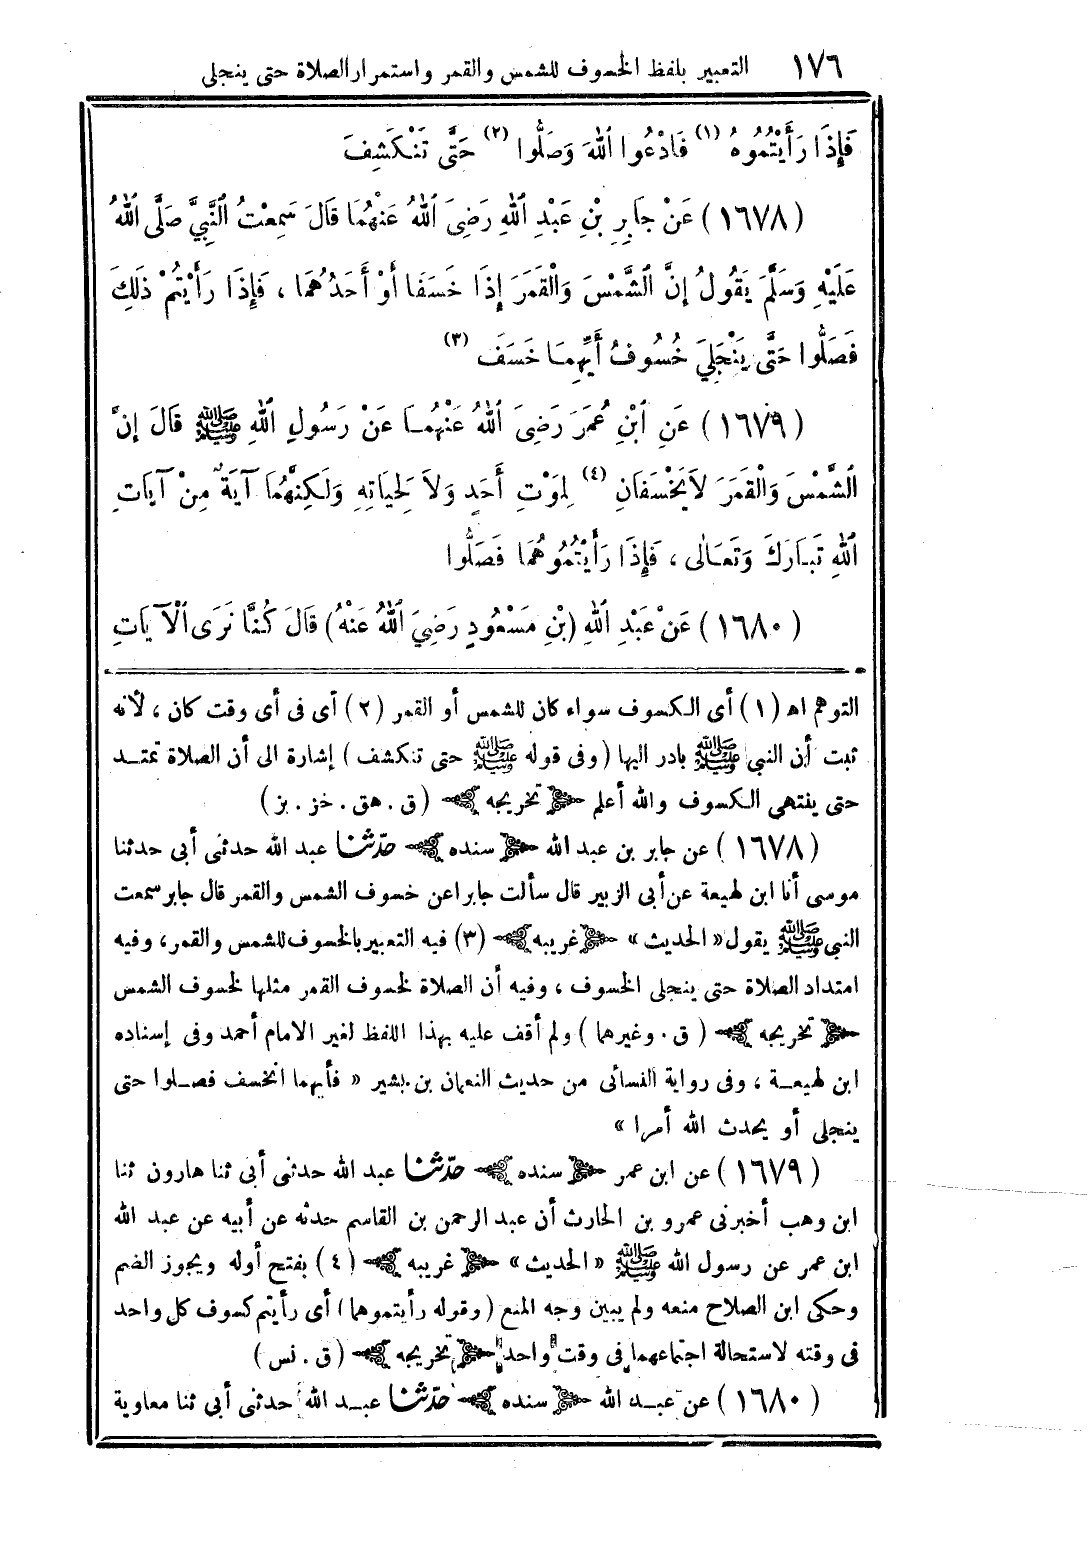 ١٧٦ التعبير بلفظ الخسوف للشمس والقمر واستمرار الصلاة حتى ينجلى
فَإِذَا رَأَيْتُمُوهُ (١) فَادْعُوا ٱللهَ وَصَلُّوا (٢) حَتَّى تَنْكَشِفَ
(١٦٧٨) عَنْ جَابِرِ بْنِ عَبْدِ ٱللهِ رَضِىَ ٱللهُ عَنْهُمَا قَالَ سَمِعْتُ ٱلنَّبِيَّ صَلَّى ٱللهُ
عَلَيْهِ وَسَلَّمَ يَقُولُ إِنَّ ٱلشَّمْسَ وَٱلْقَمَرَ إِذَا خَسَفَا أَوْ أَحَدُهُمَا ، فَإِذَا رَأَيْتُمْ ذَلِكَ
فَصَلُّوا حَتَّى يَنْجَلِيَ خُسُوفُ أَيِّهِمَا خَسَفَ (٣)
(١٦٧٩) عَنِ ٱبْنِ عُمَرَ رَضِىَ ٱللهُ عَنْهُمَا عَنْ رَسُولِ ٱللهِ ﷺ قَالَ إِنَّ
ٱلشَّمْسَ وَٱلْقَمَرَ لَا يَخْسَفَانِ (٤) لِمَوْتِ أَحَدٍ وَلَا لِحَيَاتِهِ وَلَكِنَّهُمَا آيَةٌ مِنْ آيَاتِ
ٱللهِ تَبَارَكَ وَتَعَالَى ، فَإِذَا رَأَيْتُمُوهُمَا فَصَلُّوا
(١٦٨٠) عَنْ عَبْدِ ٱللهِ (بْنِ مَسْعُودٍ رَضِيَ ٱللهُ عَنْهُ) قَالَ كُنَّا نَرَى ٱلْآيَاتِ
التوهم اه (١) أى الكسوف سواء كان للشمس أو القمر (٢) أى فى أى وقت كان ، لأنه
ثبت أن النبى ﷺ بادر اليها (وفى قوله ﷺ حتى تنكشف) إشارة الى أن الصلاة تمتد
حتى ينتهى الكسوف والله أعلم ﴿تخريجه﴾ (ق . هق . خز . بز)
(١٦٧٨) عن جابر بن عبد الله ﴿سنده﴾ حدّثنا عبد الله حدثنى أبى حدثنا
موسى أنا ابن لهيعة عن أبى الزبير قال سألت جابرا عن خسوف الشمس والقمر قال جابر سمعت
النبى ﷺ يقول « الحديث » ﴿غريبه﴾ (٣) فيه التعبير بالخسوف للشمس والقمر، وفيه
امتداد الصلاة حتى ينجلى الخسوف ، وفيه أن الصلاة لخسوف القمر مثلها لخسوف الشمس
﴿تخريجه﴾ (ق . وغيرهما) ولم أقف عليه بهذا اللفظ لغير الامام أحمد وفى إسناده
ابن لهيعة ، وفى رواية النسائى من حديث النعمان بن بشير « فأيهما انخسف فصلوا حتى
ينجلى أو يحدث الله أمرا »
(١٦٧٩) عن ابن عمر ﴿سنده﴾ حدّثنا عبد الله حدثنى أبى ثنا هارون ثنا
ابن وهب أخبرنى عمرو بن الحارث أن عبد الرحمن بن القاسم حدثه عن أبيه عن عبد الله
ابن عمر عن رسول الله ﷺ « الحديث » ﴿غريبه﴾ (٤) بفتح أوله ويجوز الضم
وحكى ابن الصلاح منعه ولم يبين وجه المنع (وقوله رأيتموهما) أى رأيتم كسوف كل واحد
فى وقته لاستحالة اجتماعهما فى وقت واحد ﴿تخريجه﴾ (ق . نس)
(١٦٨٠) عن عبد الله ﴿سنده﴾ حدّثنا عبد الله حدثنى أبى ثنا معاوية